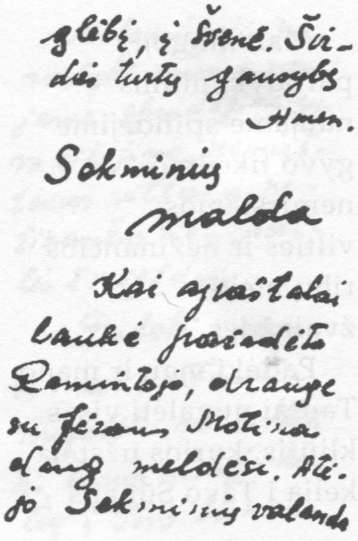 glėbį į Švenč. Šir-
dies turtų gausybę
Amen.
Sekminių
malda
Kai apaštalai
laukė pažadėto
Ramintojo, drauge
su Jėzaus Motina
daug meldėsi. Atė-
jo Sekminių valanda